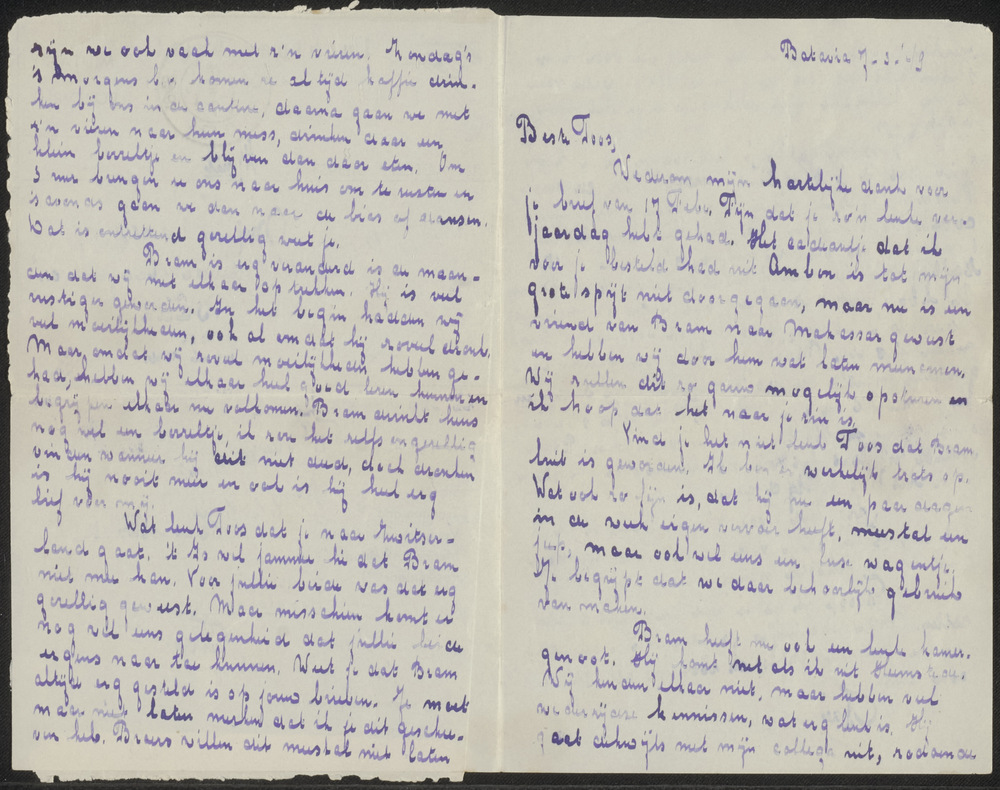 Batavia 7-3-'49
Beste Toos,
Wederom mijn hartelijke dank voor
je brief van 17 Febr. Fijn dat je zo'n leuke ver-
jaardag hebt gehad. Het cadeautje dat ik
voor je besteld had uit Ambon is tot mijn
grote spijt niet doorgegaan, maar nu is een
vriend van Bram naar Makassar geweest
en hebben wij door hem wat laten meenemen.
Wij zullen dit zo gauw mogelijk opsturen en
ik hoop dat het naar je zin is.
Vind je het niet leuk Toos dat Bram
luit is geworden. Ik ben er werkelijk trots op.
Wat ook zo fijn is, dat hij nu een paar dagen
in de week eigen vervoer heeft, meestal een
jeep, maar ook wel eens een luxe wagentje.
Je begrijpt dat we daar behoorlijk gebruik
van maken.
Bram heeft nu ook een leuke kamer-
genoot. Hij komt net als ik uit Heemstede.
Wij kenden elkaar niet, maar hebben veel
wederzijdse kennissen, wat erg leuk is. Hij
gaat dikwijls met mijn collega uit, zodoende
zijn we ook vaak met z'n vieren. Zondag's
's morgens komen ze altijd koffie drin-
ken bij ons in de cantine, daarna gaan we met
z'n vieren naar hun mess, drinken daar een
klein borreltje en blijven dan daar eten. Om
3 uur brengen ze ons naar huis om te rusten en
's avonds gaan we dan naar de bios of dansen.
Dat is ontzettend gezellig weet je.
Bram is erg veranderd is de maan-
den dat wij met elkaar optrekken. Hij is veel
rustiger geworden. In het begin hadden wij
veel moeilijkheden, ook al omdat hij zoveel dronk.
Maar, omdat wij zoveel moeilijkheden hebben ge-
had, hebben wij elkaar heel goed leren kennen en
begrijpen elkaar nu volkomen. Bram drinkt heus
nog wel een borreltje, ik zou het zelfs ongezellig
vinden wanneer hij dit niet deed, doch dronken
is hij nooit meer en ook is hij heel erg
lief voor mij.
Wat leuk Toos dat je naar Zwitser-
land gaat. 't Is wel jammer hè dat Bram
niet mee kan. Voor jullie beide was dat erg
gezellig geweest. Maar misschien komt er
nog wel eens gelegenheid dat jullie beide
ergens naar toe kunnen. Weet je dat Bram
altijd erg gesteld is op jouw brieven. Je moet
maar niet laten merken dat ik je dit geschre-
ven heb. Broers willen dit meestal niet laten